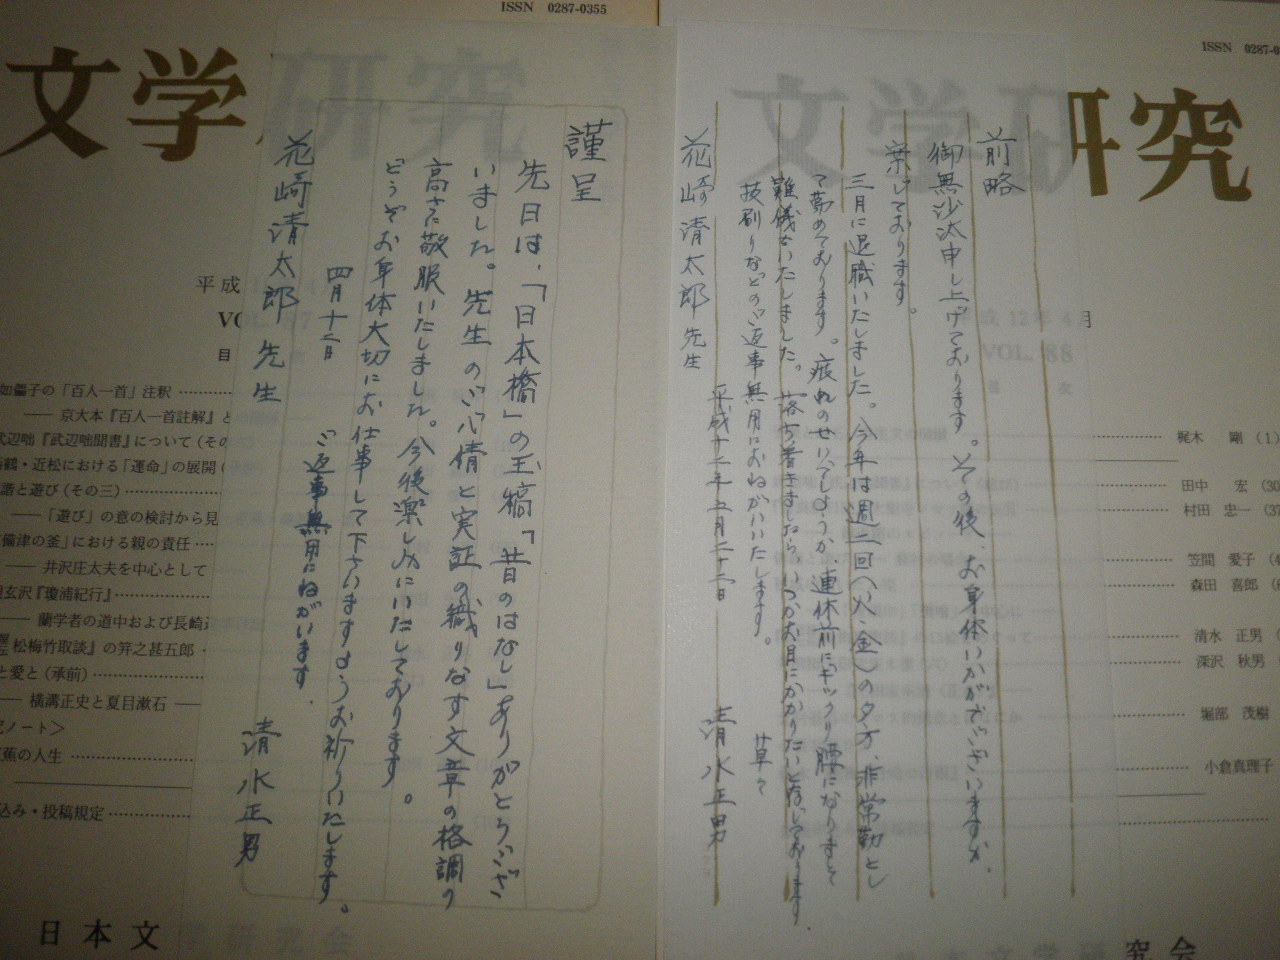 ISSN 0287-0355
文学研究
平成
VOL. 87
目
如儡子の「百人一首」注釈
── 京大本『百人一首註解』と
武辺咄『武辺咄聞書』について(その
西鶴・近松における「運命」の展開(
諧と遊び(その三)
──「遊び」の意の検討から見
備津の釜」における親の責任
── 井沢庄太夫を中心として
玄沢『瓊浦紀行』
── 蘭学者の道中および長崎
松梅竹取談』の笄之甚五郎
と愛と(承前)
── 横溝正史と夏目漱石 ──
ノート>
芭蕉の人生
込み・投稿規定
日本文学研究会
謹呈
先日は、「日本橋」の玉稿「昔のはなし」ありがとうござ
いました。先生のご心情と実証の織りなす文章の格調の
高さに敬服いたしました。今後楽しみにいたしております。
どうぞお身体大切にお仕事して下さいますようお祈りいたします。
四月十二日
ご返事無用にねがいます.
清水正男
花崎清太郎先生
ISSN 0287-0
文学研究
平成12年4月
VOL. 88
目 次
梶木 剛 (1)
田中 宏 (30
村田 忠一 (37
笠間 愛子 (4
森田 喜郎 (6
清水 正男
深沢 秋男
堀部 茂樹
小倉真理子
日本文学研究会
前略
御無沙汰申し上げております。その後、お身体いかがでございますか、
案じております。
三月に退職いたしました。今年は週二回(火・金)の夕方、非常勤とし
て勤めております。疲れのせいでしょうか、連休前にギックリ腰になりまして
難儀をいたしました。落ち着きましたら、いつかお目にかかりたいと存じております。
抜刷りなどのご返事無用におねがいいたします。
草々
平成十二年五月二十二日
清水正男
花崎清太郎先生